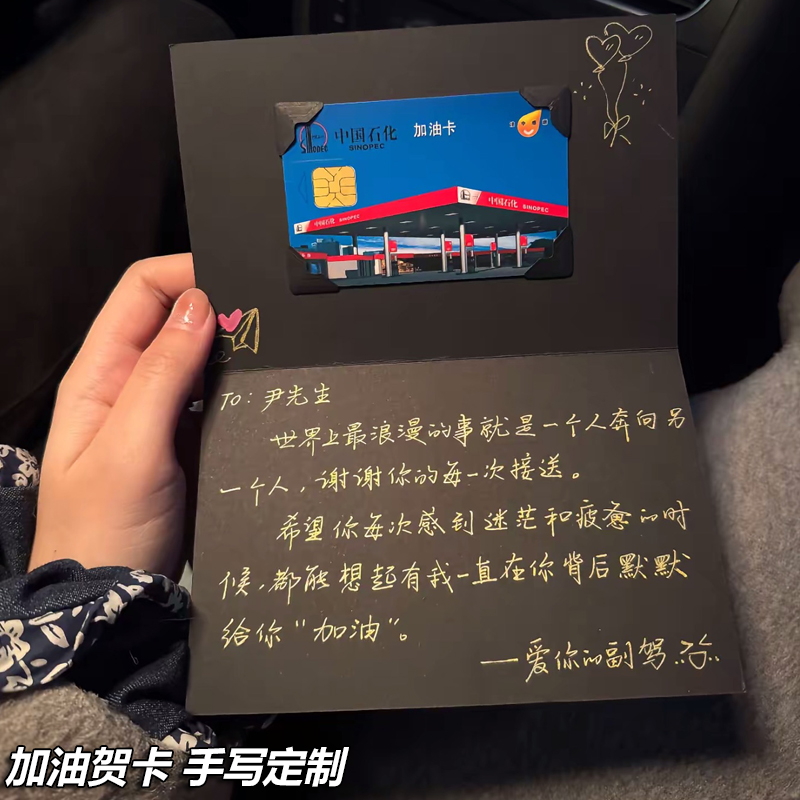 中国石化 加油卡
SINOPEC
中国石化 SINOPEC
中国石化 SINOPEC
To：尹先生
世界上最浪漫的事就是一个人奔向另
一个人，谢谢你的每一次接送。
希望你每次感到迷茫和疲惫的时
候，都能想起有我一直在你背后默默
给你“加油”。
——爱你的副驾
加油贺卡 手写定制